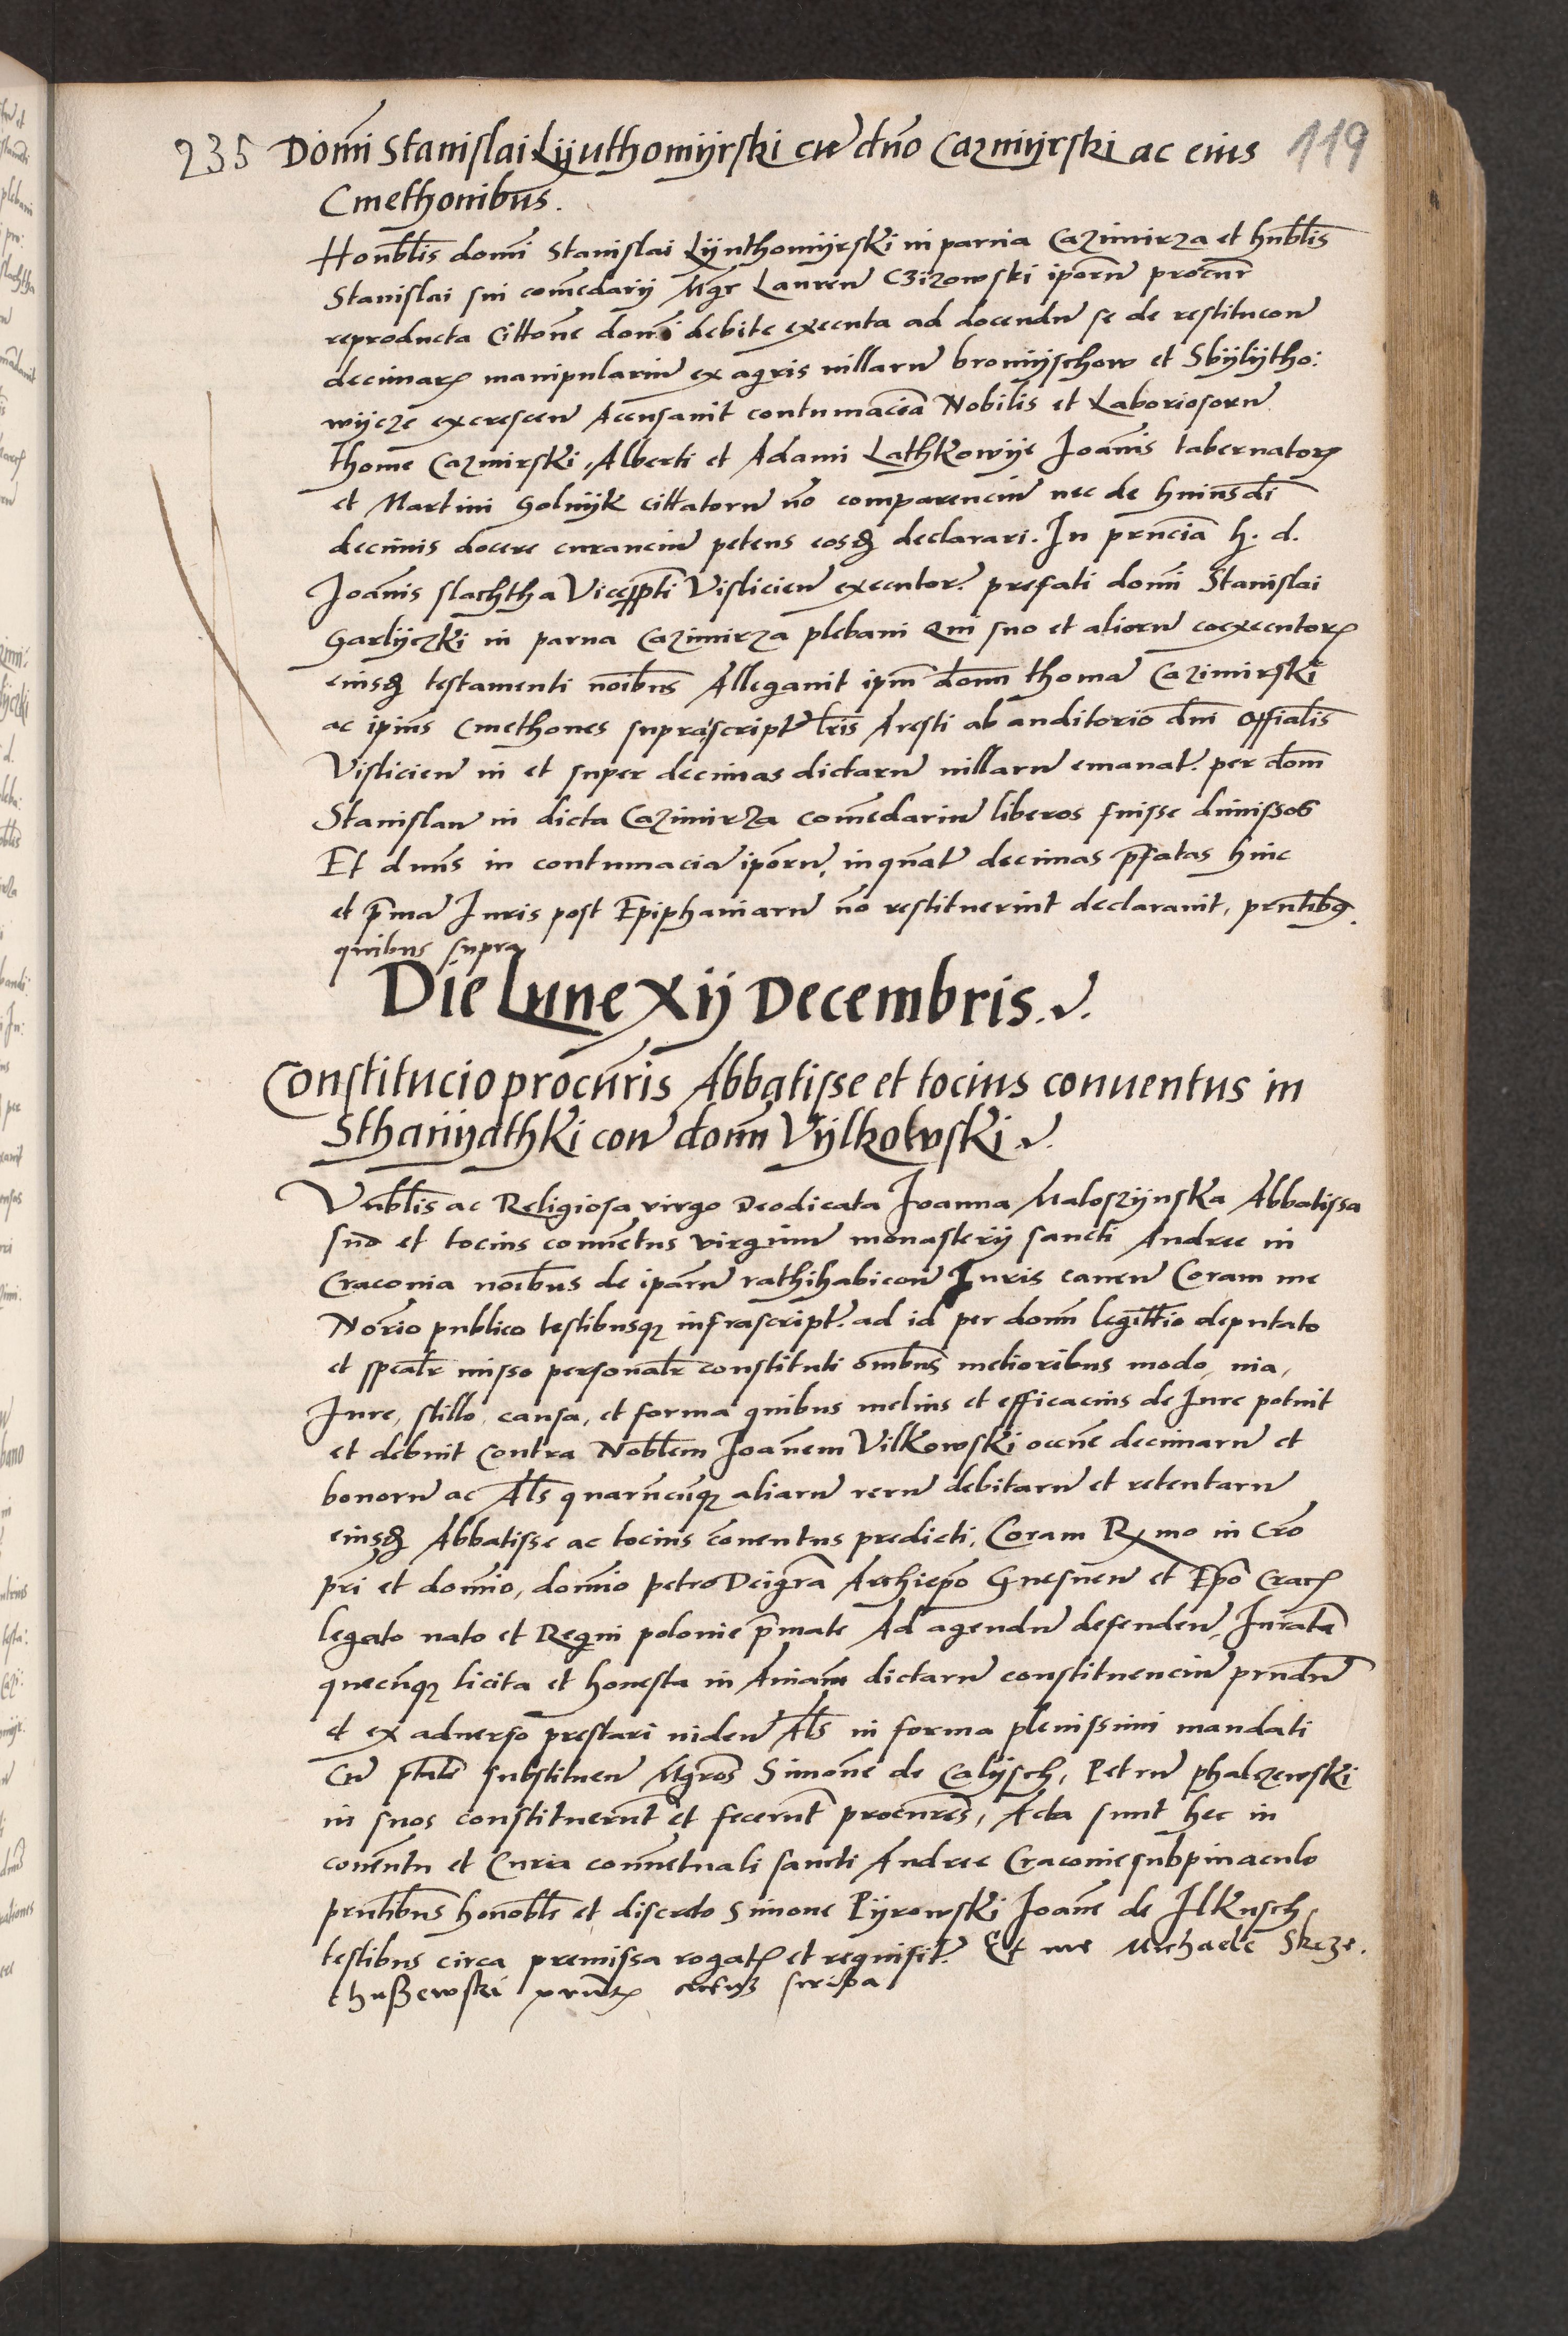 235 Domi Stanislai Lyuthomyrski cu dno Cazmyrski ac eius 119
Cmethonibus.
Honblis domi Stanislai Lyuthomyrski in parua Cazimirza et hnblis
Stanislai sui comedarij Mgr Lauren Czizowski iporu procur
reproducta Cittone domi debite executa ad docendu se de restitucon
decimar manipulariu ex agris uillaru bromyschow et Sbylytho:
wycze excrescen Accusauit contumacia Nobilis et Laboriosoru
thome Cazmirski, Alberti et Adami Lathkowye Joanis tabernator
et Martini Golnyk cittatoru no comparenciu nec de huiusdi
decimis docere curanciu petens eosd declarari. In prncia h. d.
Joanis slachtha Viceppti Vislicien executor. prefati domi Stanislai
Garlyczki in parua Cazimirza plebani Qui suo et alioru coexecutor
eiusd testamenti noibus Allegauit ipm domi thoma Cazimirski
ac ipius Cmethones suprascript lris Aresti ab auditorio dni Offialis
Vislicien in et super decimas dictaru uillaru emanat. per dom
Stanislau in dicta Cazimirza comedariu liberos fuisse dimissos
Et dnus in contumacia iporu, inquat decimas pfatas hinc
et pma Juris post Epiphaniaru no restituerint declarauit, prntibq.
quibus supra
Die Lune xij Decembris.
Constitucio procuris Abbatisse et tocius conuentus in
Sthanyathki con domi Vylkowski
Vnblis ac Religiosa virgo Deodicata Joanna Maloszynska Abbatissa
suo et tocius conuetus virginu monasterij sancti Andree in
Craconia noibus de iparu rathihabicon Juris cauen Coram me
Norio publico testibusq infrascript. ad id per domi legittio deputato
et spealr misso personalr constituti omibus melioribus modo, uia,
Jure, stillo, causa, et forma quibus melius et efficacius de Jure potuit
et debuit Contra Noblem Joanem Vilkowski occne decimaru et
bonoru ac Als quarucuq aliaru reru debitaru et retentaru
eiusd Abbatisse ac tocius conuentus predicti, Coram Rmo in Cro
pri et domio, domio petro Dei gra Archiepo Gnesnen et Epo Crac
legato nato et Regni polonie pmate Ad agendu defenden, Jurata
quecuq licita et honesta in Aniam dictaru constituenciu prndu
et ex aduerso prestari uiden Als in forma plenissimi mandati
Cu ptate substituen Mgros Simone de Calysch, Petru phalczewski
in suos constituerut et fecerut procures, Acta sunt hec in
couentu et Curia conuetuali sancti Andree Craconie sub pinaculo
prntibus honoble et discreto Simone Pyrowski Joane de Ilkusch
testibus circa premissa rogat et requisit. Et me Michaele Skrze.
thuszewski scriba